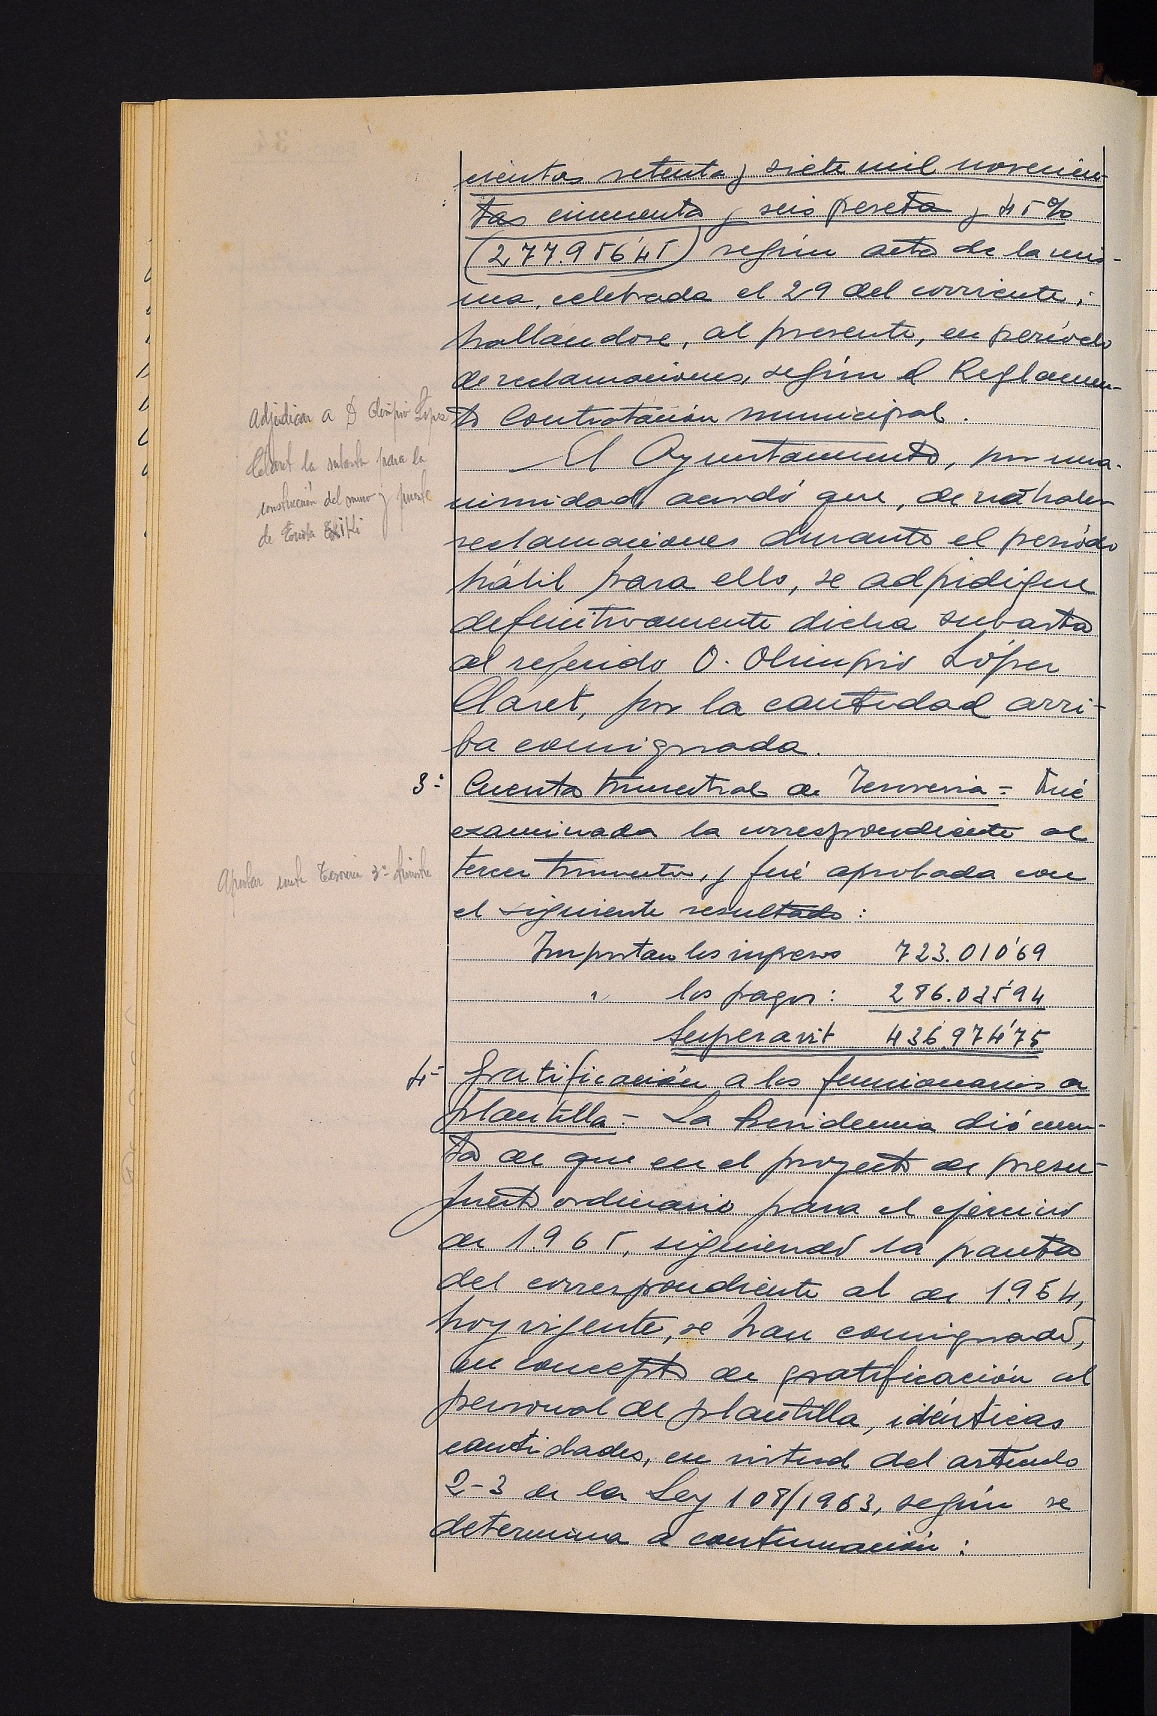 cientos setenta y siete mil novecien-
tas cincuenta y seis peseta y 45%
(277.956'45) según acta de la mis-
ma, celebrada el 29 del corriente;
hallándose, al presente, en período
de reclamaciones, según el Reglamen-
to Contratación municipal.
El Ayuntamiento, por una-
nimidad, acordó que, de no haber
reclamaciones durante el período
hábil para ello, se adjudique
definitivamente dicha subasta
al referido D. Olimpio López
Claret, por la cantidad arri-
ba consignada.
Adjudicar a D. Olimpio López
Claret la subasta para la
construcción del muro y puente
de
3º Cuenta trimestral de Tesorería = Fué
examinada la correspondiente al
tercer trimestre, y fué aprobada con
el siguiente resultado:
Aprobar cuenta Tesorería 3º trimestre
Importan los ingresos 723.010'69
" los pagos: 286.035'94
Superavit 436.974'75
4º Gratificación a los funcionarios de
plantilla = La Presidencia dió cuen-
ta de que en el proyecto de presu-
puesto ordinario para el ejercicio
de 1.965, siguiendo la pauta
del correspondiente al de 1.964,
hoy vigente, se han consignado,
en concepto de gratificación al
personal de plantilla, idénticas
cantidades, en virtud del artículo
2-3 de la Ley 108/1963, según se
determina a continuación: